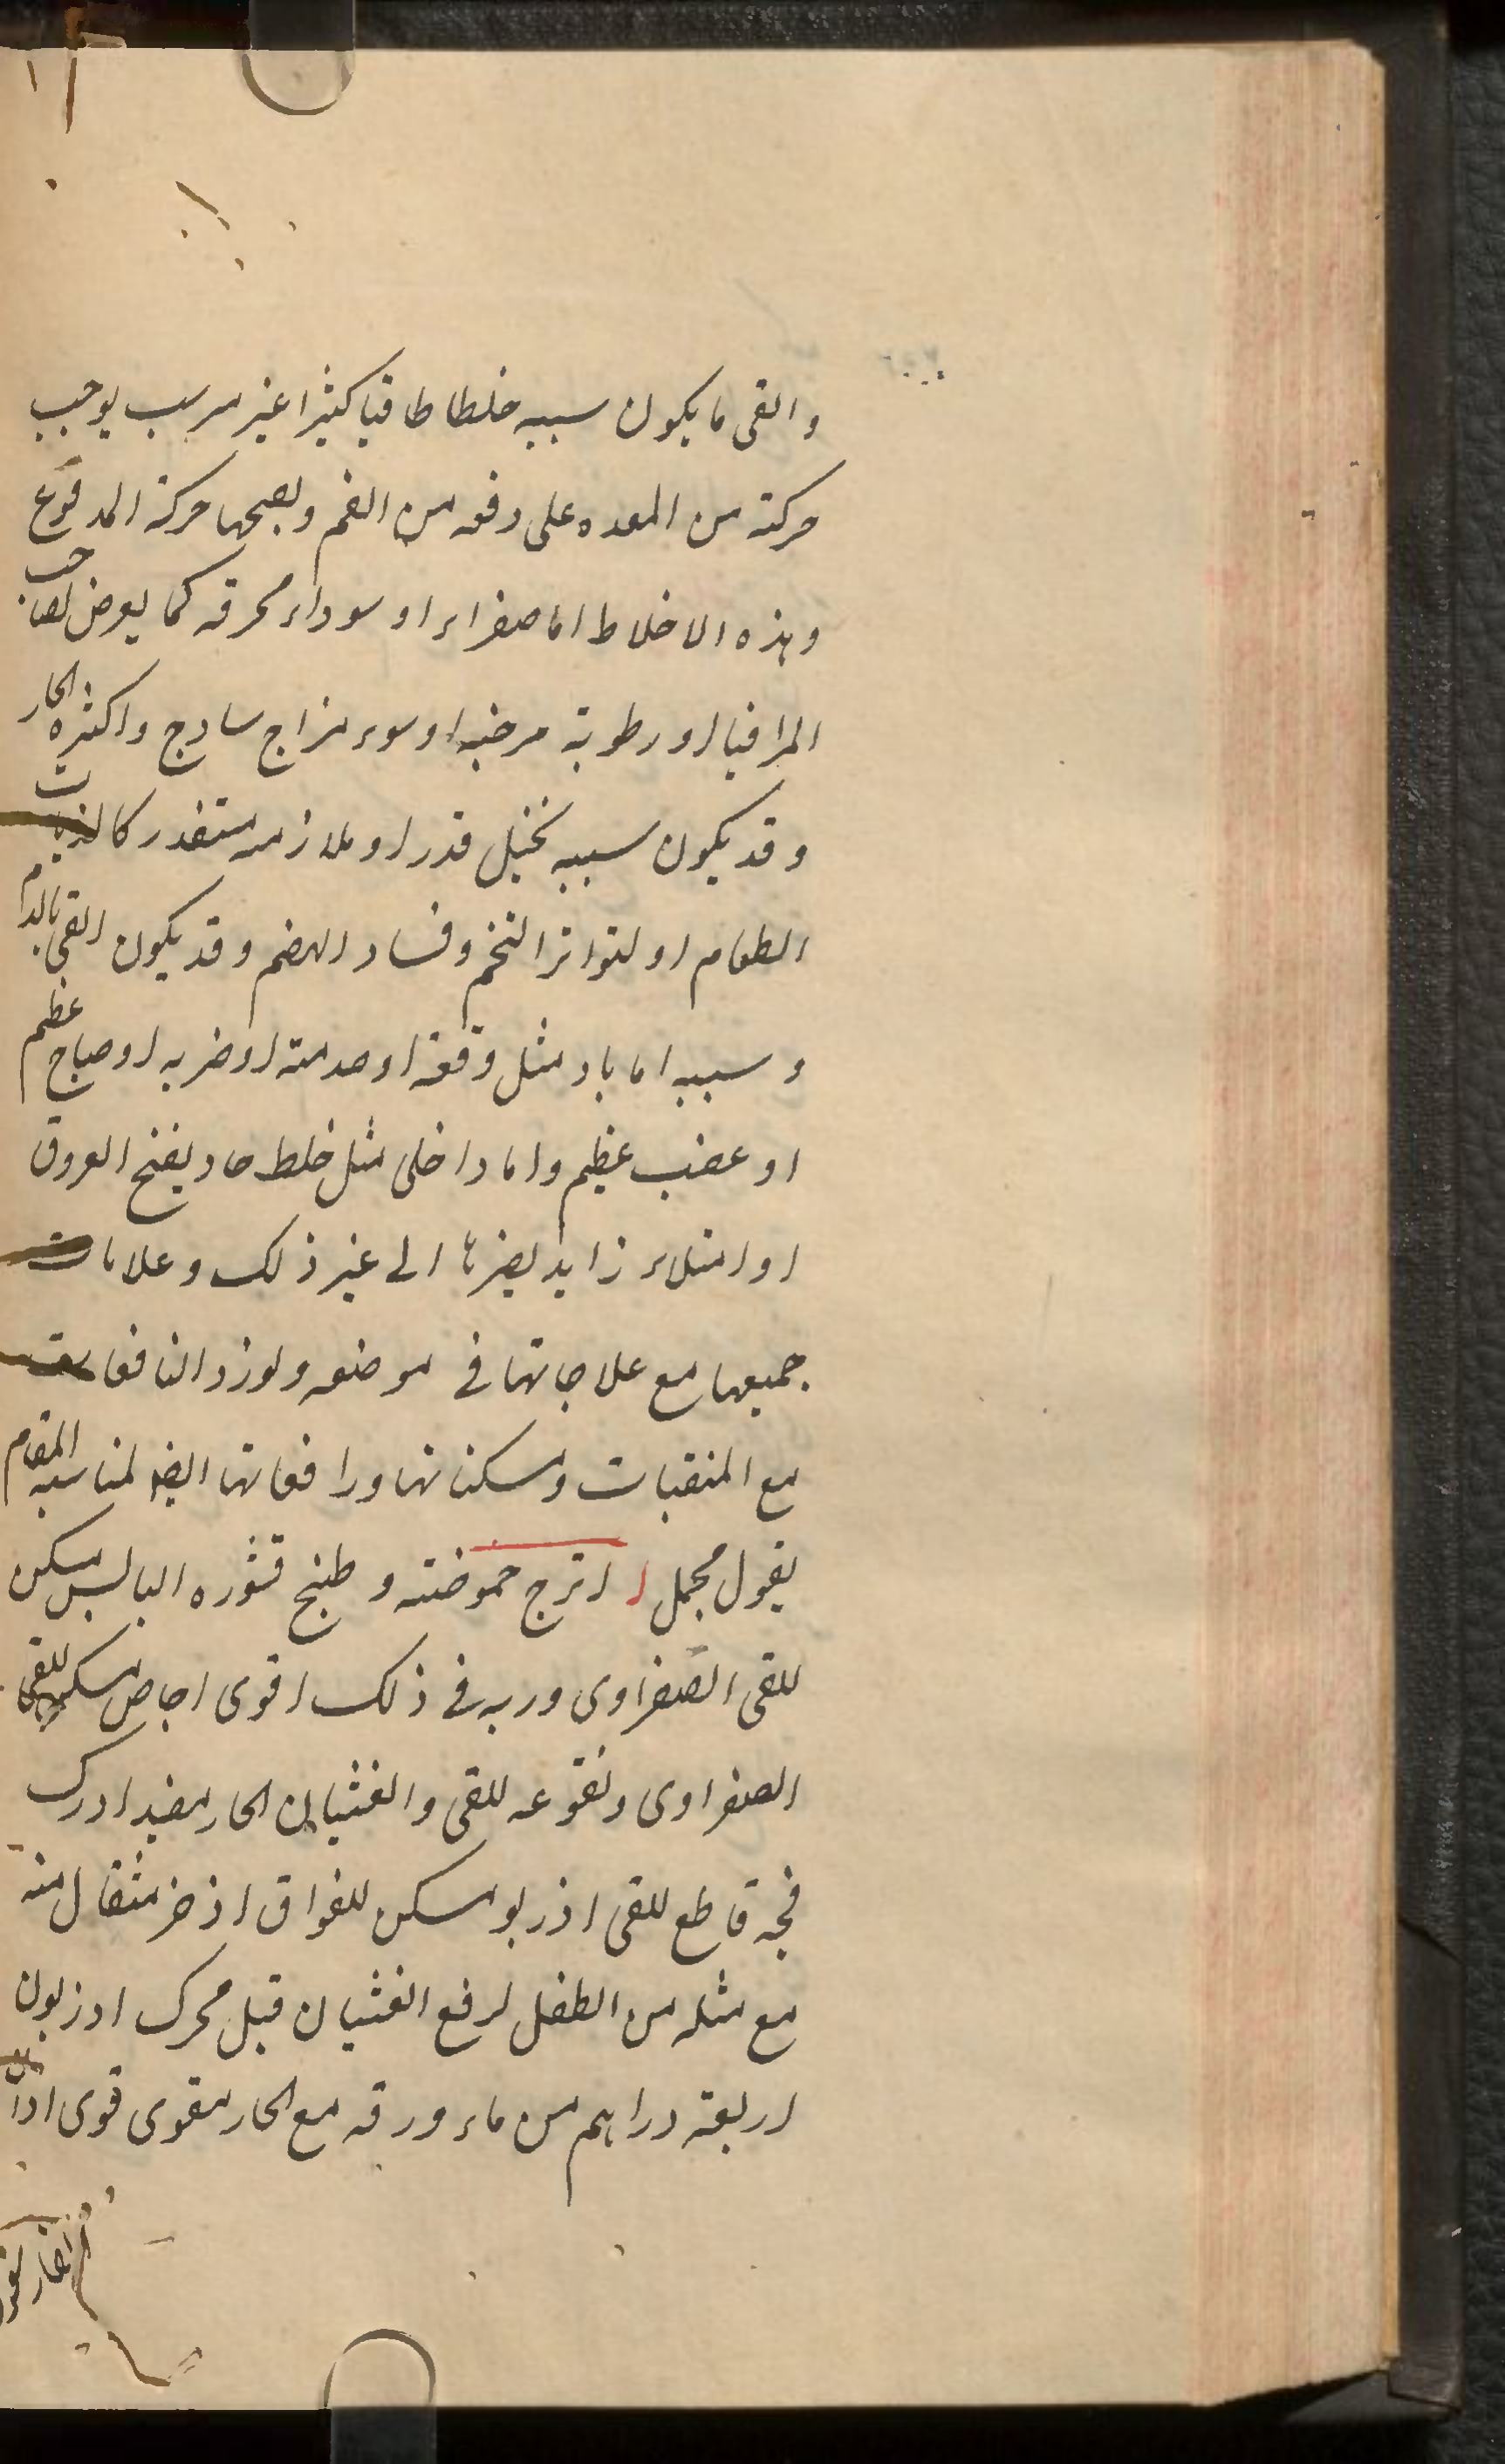 والقی ما یکون سببه خلطا طافیا کثیرا غیر مرسب یوجب
حرکة من المعده علی دفعه من الفم ویصحبها حرکة المدفوع
وهذه الاخلاط اما صفراء او سوداء محرقه کما یعرض لصاحب
المراقیا او رطوبة مرخیه او سوء مزاج سادج واکثره الحار
وقد یکون سببه تخیل قدر او ملازمه مستقدر کالذباب
الطعام او لتواتر التخم وفساد الهضم وقد یکون القی بالدم
وسببه اما باد مثل وقعة او صدمة او ضربه او صیاح عظیم
او غضب عظیم واما داخلی مثل خلط حاد یفتح العروق
او امتلاء زاید یضرها الی غیر ذلک وعلامات
جمیعها مع علاجاتها فی موضعه ولورد النافعات
مع المنقیات ومسکناتها ورافعاتها ایضا لمناسبه المقام
بقول مجمل ا اترج حموضته وطبیخ قشوره الیابس مسکن
للقی الصفراوی وربه فی ذلک اقوی اجاص مسکن للقی
الصفراوی ونقوعه للقی والغثیان الحار مفید ادرک
فجه قاطع للقی اذربو مسکن للفواق اذخر مثقال منه
مع مثله من الفلفل لرفع الغثیان قیل محرک
اربعة دراهم من ماء ورقه مع الحار مقوی قوی